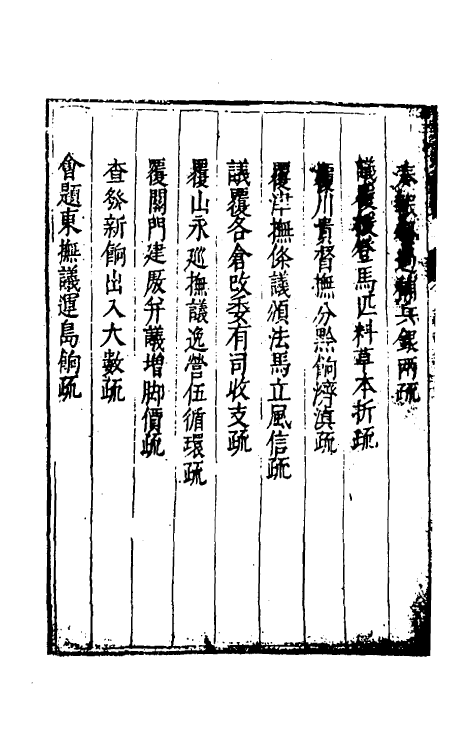 兵銀兩疏
馬匹料草本折疏
川貴督撫分黔餉濟滇疏
覆津撫條議頒法馬立風信疏
議覆各倉改委有司收支疏
覆山永巡撫議逃營伍循環疏
覆關門建厫并議增脚價疏
查發新餉出入大數疏
會題東撫議運島餉疏